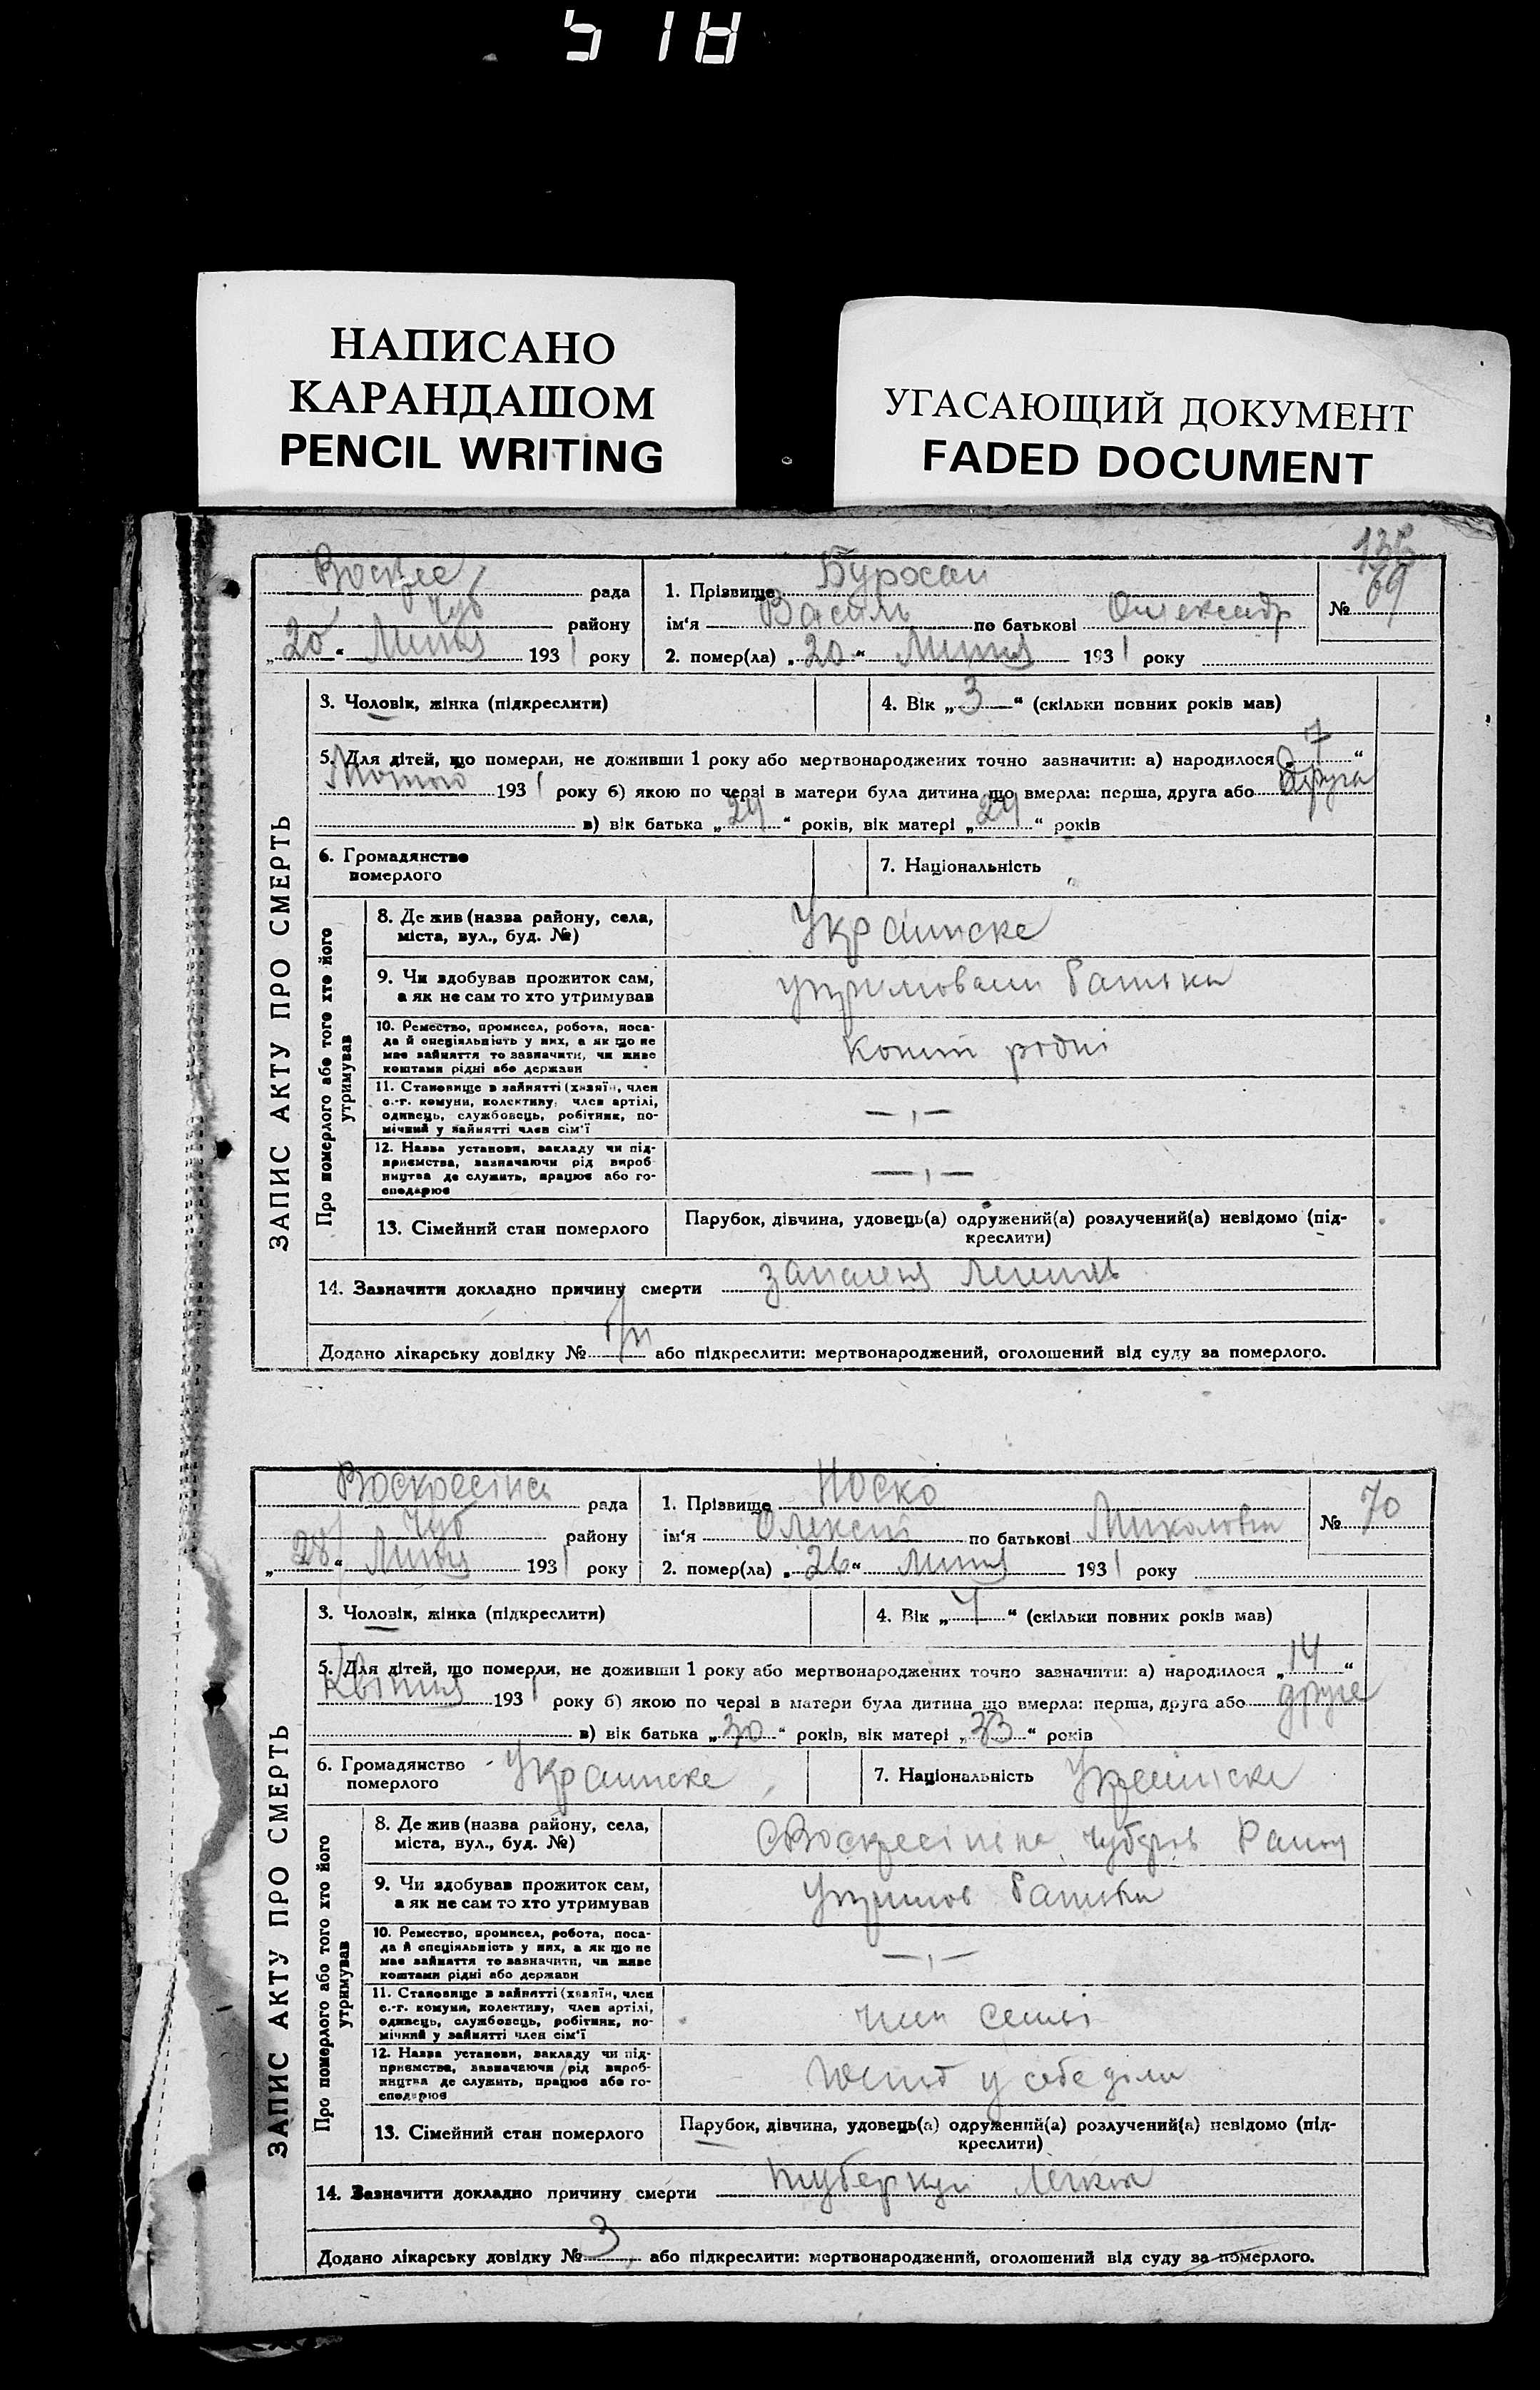 518
НАПИСАНО
КАРАНДАШОМ
PENCIL WRITING
УГАСАЮЩИЙ ДОКУМЕНТ
FADED DOCUMENT
ЗАПИС АКТУ ПРО СМЕРТЬ
Воскрес рада
Чуб району
„20“ Липня 1931 року
1. Прізвище
ім'я Василь по батькові Олександр
2. помер(ла) „20“ Липня 1931 року
№ 69
3. Чоловік, жінка (підкреслити)
4. Вік „3“ (скільки повних років мав)
5. Для дітей, що померли, не доживши 1 року або мертвонароджених точно зазначити: а) народилося „7“
Лютого 1931 року б) якою по черзі в матери була дитина що вмерла: перша, друга або друга
в) вік батька „24“ років, вік матері „24“ років
6. Громадянство
померлого
7. Національність
Про померлого або того хто його
утримував
8. Де жив (назва району, села,
міста, вул., буд. №)
Украинске
9. Чи здобував прожиток сам,
а як не сам то хто утримував
утримовали батьки
10. Ремество, промисел, робота, поса-
да й спеціяльність у них, а як що не
має зайняття то зазначити, чи живе
коштами рідні або держави
кошти родні
11. Становище в зайнятті (хазяїн, член
с.-г. комуни, колективу, член артілі,
одинець, службовець, робітник, по-
мічний у зайнятті член сім'ї
— „ —
12. Назва установи, закладу чи під-
приємства, зазначаючи рід вироб-
ництва де служить, працює або го-
сподарює
— „ —
13. Сімейний стан померлого
Парубок, дівчина, удовець(а) одружений(а) розлучений(а) невідомо (під-
креслити)
14. Зазначити докладно причину смерти запаленя легень
Додано лікарську довідку № або підкреслити: мертвонароджений, оголошений від суду за померлого.
ЗАПИС АКТУ ПРО СМЕРТЬ
Воскресінсь рада
Чуб району
„28“ Липня 1931 року
1. Прізвище Носко
ім'я Олексій по батькові Миколович
2. помер(ла) „26“ Липня 1931 року
№ 70
3. Чоловік, жінка (підкреслити)
4. Вік „4“ (скільки повних років мав)
5. Для дітей, що померли, не доживши 1 року або мертвонароджених точно зазначити: а) народилося „14“
Квітня 1931 року б) якою по черзі в матери була дитина що вмерла: перша, друга або друге
в) вік батька „30“ років, вік матері „33“ років
6. Громадянство
померлого
Украинске
7. Національність Украинске
Про померлого або того хто його
утримував
8. Де жив (назва району, села,
міста, вул., буд. №)
9. Чи здобував прожиток сам,
а як не сам то хто утримував
Утримов батьки
10. Ремество, промисел, робота, поса-
да й спеціяльність у них, а як що не
має зайняття то зазначити, чи живе
коштами рідні або держави
— „ —
11. Становище в зайнятті (хазяїн, член
с.-г. комуни, колективу, член артілі,
одинець, службовець, робітник, по-
мічний у зайнятті член сім'ї
член семьі
12. Назва установи, закладу чи під-
приємства, зазначаючи рід вироб-
ництва де служить, працює або го-
сподарює
у себе
13. Сімейний стан померлого
Парубок, дівчина, удовець(а) одружений(а) розлучений(а) невідомо (під-
креслити)
14. Зазначити докладно причину смерти туберкул легких
Додано лікарську довідку № 3 або підкреслити: мертвонароджений, оголошений від суду за померлого.